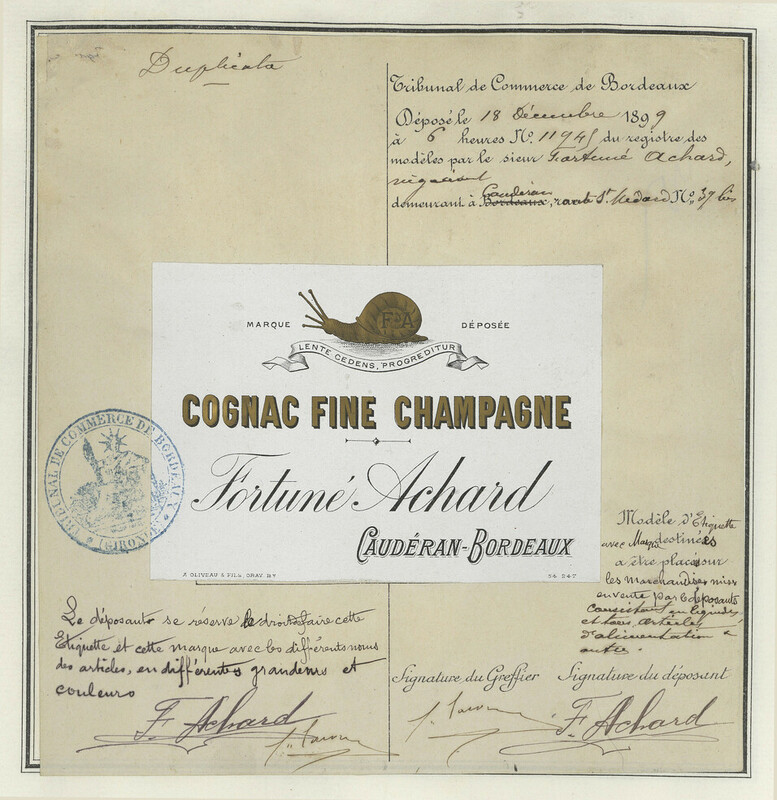 Duplicata
Tribunal de Commerce de Bordeaux
Déposé le 18 Décembre 1899
à 6 heures No. 11945 du registre des
modèles par le sieur Fortuné Achard,
négociant
Caudéran
demeurant à Bordeaux, route St. Médard No. 39 bis
MARQUE DÉPOSÉE
F A
LENTE CEDENS, PROGREDITUR
COGNAC FINE CHAMPAGNE
Fortuné Achard
CAUDÉRAN-BORDEAUX
A. OLIVEAU & FILS, GRAV. BX
54 247
TRIBUNAL DE COMMERCE DE BORDEAUX
(GIRONDE)
Modèle d'Etiquette
avec Marque destinées
à être placés sur
les marchandises mises
en vente par le déposants
consistant en liquides
et tous articles
d'alimentation &
autre.
Le déposants se réserve le droit de faire cette
Etiquette et cette marque avec les différents noms
des articles, en différentes grandeurs et
couleurs
Signature du Greffier
Signature du déposant
F. Achard
F. Achard